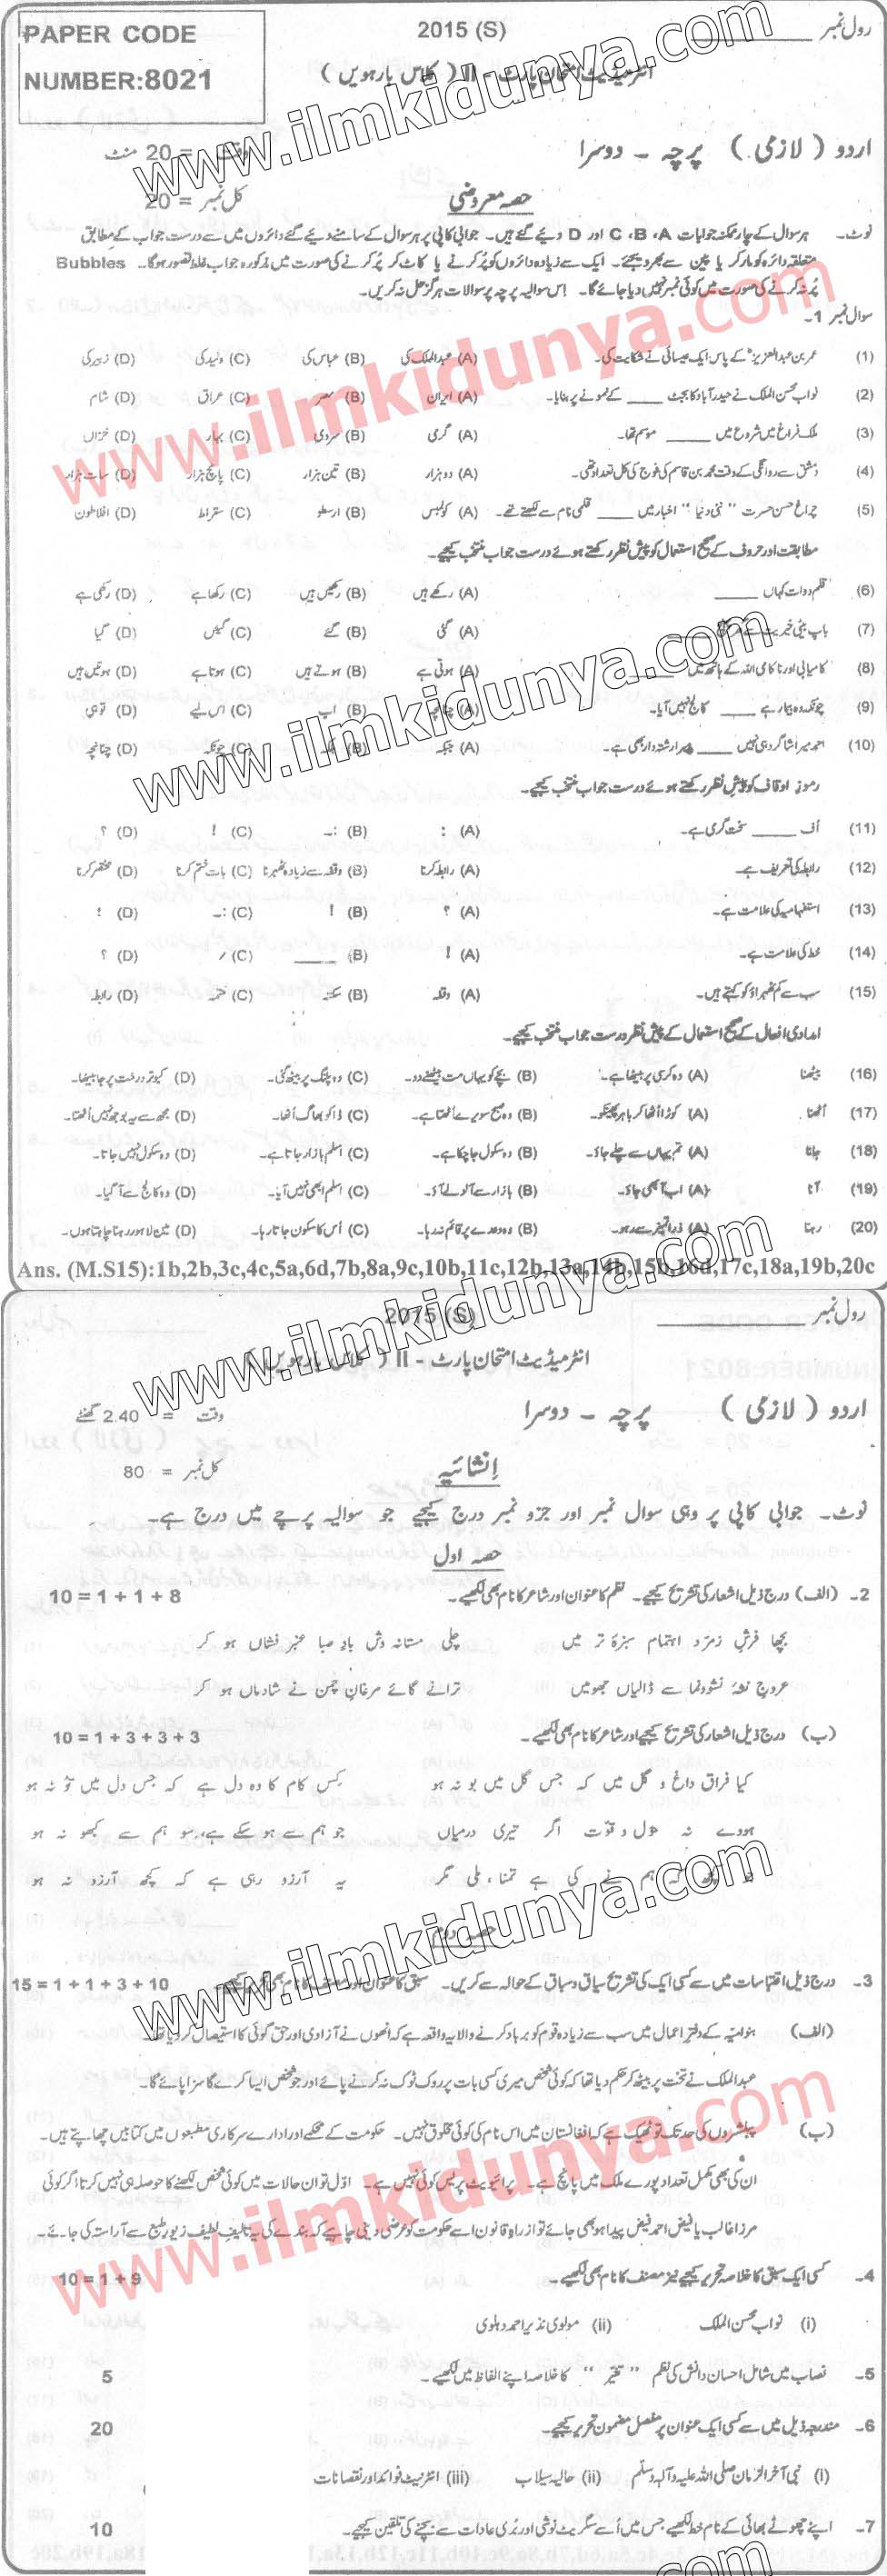 PAPER CODE
NUMBER:8021
2015 (S)
رول نمبر
انٹرمیڈیٹ امتحان پارٹ - II ( کلاس بارہویں )
اردو ( لازمی ) پرچہ - دوسرا
وقت = 20 منٹ
حصہ معروضی
کل نمبر = 20
نوٹ۔ ہر سوال کے چار ممکنہ جوابات C ،B ،A اور D دیے گئے ہیں۔ جوابی کاپی پر ہر سوال کے سامنے دیئے گئے دائروں میں سے درست جواب کے مطابق
متعلقہ دائرہ کو مارکر یا پین سے بھر دیجئے۔ ایک سے زیادہ دائروں کو پُر کرنے یا کاٹ کر پُر کرنے کی صورت میں مذکورہ جواب غلط تصور ہوگا۔ Bubbles
پُر نہ کرنے کی صورت میں کوئی نمبر نہیں دیا جائے گا۔ اِس سوالیہ پرچہ پر سوالات ہرگز حل نہ کریں۔
سوال نمبر 1۔
(1) عمر بن عبدالعزیزؒ کے پاس ایک عیسائی نے شکایت کی۔ (A) عبدالملک کی (B) عباس کی (C) ولید کی (D) زبیر کی
(2) نواب محسن الملک نے حیدر آباد کا بجٹ ____ کے نمونے پر بنایا۔ (A) ایران (B) مصر (C) عراق (D) شام
(3) ملک فراغ میں شروع میں ____ موسم تھا۔ (A) گرمی (B) سردی (C) بہار (D) خزاں
(4) دمشق سے روانگی کے وقت محمد بن قاسم کی فوج کی کل تعداد تھی۔ (A) دو ہزار (B) تین ہزار (C) پانچ ہزار (D) سات ہزار
(5) چراغ حسن حسرت " نئی دنیا " اخبار میں ____ قلمی نام سے لکھتے تھے۔ (A) کولمبس (B) ارسطو (C) سقراط (D) افلاطون
مطابقت اور حروف کے صحیح استعمال کو پیش نظر رکھتے ہوئے درست جواب منتخب کیجیے۔
(6) قلم دوات کہاں ____ (A) رکھے ہیں (B) رکھیں ہیں (C) رکھا ہے (D) رکھی ہے
(7) باپ بیٹی خیریت سے گھر پہنچ ____ (A) گئی (B) گئے (C) گئیں (D) گیا
(8) کامیابی اور ناکامی اللہ کے ہاتھ میں ____ (A) ہوتی ہے (B) ہوتے ہیں (C) ہوتا ہے (D) ہوتیں ہیں
(9) چونکہ وہ بیمار ہے ____ کالج نہیں آیا۔ (A) چنانچہ (B) اب (C) اس لیے (D) تو ہی
(10) احمد میرا شاگرد ہی نہیں ____ میرا رشتہ دار بھی ہے۔ (A) جبکہ (B) بلکہ (C) چونکہ (D) چنانچہ
رموز اوقاف کو پیش نظر رکھتے ہوئے درست جواب منتخب کیجیے۔
(11) اُف ____ سخت گرمی ہے۔ (A) : (B) :۔ (C) ! (D) ؟
(12) رابطہ کی تعریف ہے۔ (A) رابطہ کرنا (B) وقفہ سے زیادہ ٹھہرنا (C) بات ختم کرنا (D) مختصر کرنا
(13) استفہامیہ کی علامت ہے۔ (A) ؟ (B) ! (C) :۔ (D) !
(14) خط کی علامت ہے۔ (A) ! (B) ____ (C) ؍ (D) ؟
(15) سب سے کم ٹھہراؤ کو کہتے ہیں۔ (A) وقفہ (B) سکتہ (C) ختمہ (D) رابطہ
امدادی افعال کے صحیح استعمال کے پیش نظر درست جواب منتخب کیجیے۔
(16) بیٹھنا (A) وہ کرسی پر بیٹھا ہے۔ (B) بچے کو یہاں مت بیٹھنے دو۔ (C) وہ پلنگ پر بیٹھ گئی۔ (D) کبوتر درخت پر جا بیٹھا۔
(17) اُٹھنا (A) کوڑا اُٹھا کر باہر پھینکو۔ (B) وہ صبح سویرے اُٹھتا ہے۔ (C) ڈاکو بھاگ اُٹھا۔ (D) مجھ سے یہ بوجھ نہیں اُٹھتا۔
(18) جانا (A) تم یہاں سے چلے جاؤ۔ (B) وہ سکول جا چکا ہے۔ (C) اسلم بازار جاتا ہے۔ (D) وہ سکول نہیں جاتا۔
(19) آنا (A) اب آ بھی جاؤ۔ (B) بازار سے آلو لے آؤ۔ (C) اسلم ابھی نہیں آیا۔ (D) وہ کالج سے آ گیا۔
(20) رہنا (A) ذرا تمیز سے رہو۔ (B) وہ وعدے پر قائم نہ رہا۔ (C) اُس کا سکون جاتا رہا۔ (D) میں لاہور رہنا چاہتا ہوں۔
Ans. (M.S15):1b,2b,3c,4c,5a,6d,7b,8a,9c,10b,11c,12b,13a,14b,15b,16d,17c,18a,19b,20c
2015 (S)
رول نمبر
انٹرمیڈیٹ امتحان پارٹ - II ( کلاس بارہویں )
اردو ( لازمی ) پرچہ - دوسرا
وقت = 2.40 گھنٹے
اِنشائیہ
کل نمبر = 80
نوٹ۔ جوابی کاپی پر وہی سوال نمبر اور جزو نمبر درج کیجیے جو سوالیہ پرچے میں درج ہے۔
حصہ اول
2۔ (الف) درج ذیل اشعار کی تشریح کیجیے۔ نظم کا عنوان اور شاعر کا نام بھی لکھیے۔ 10 = 1 + 1 + 8
بچھا فرشِ زمرّد اہتمامِ سبزۂ تر میں چلی مستانہ وش بادِ صبا عنبر فشاں ہو کر
عروجِ نشۂ نشوونما سے ڈالیاں جھومیں ترانے گائے مرغانِ چمن نے شادماں ہو کر
(ب) درج ذیل اشعار کی تشریح کیجیے اور شاعر کا نام بھی لکھیے۔ 10 = 1 + 3 + 3 + 3
کیا فرق داغ و گل میں کہ جس گل میں بو نہ ہو کس کام کا وہ دل ہے کہ جس دل میں تُو نہ ہو
ہووے نہ حول و قوّت اگر تیری درمیاں جو ہم سے ہو سکے ہے، سو ہم سے کبھو نہ ہو
جو کچھ کہ ہم نے کی ہے تمنا، ملی مگر یہ آرزو رہی ہے کہ کچھ آرزو نہ ہو
حصہ دوم
3۔ درج ذیل اقتباسات میں سے کسی ایک کی تشریح سیاق و سباق کے حوالہ سے کریں۔ سبق کا عنوان اور مصنف کا نام بھی تحریر کیجیے۔ 15 = 1 + 1 + 3 + 10
(الف) بنوامیّہ کے دفترِ اعمال میں سب سے زیادہ قوم کو برباد کرنے والا یہ واقعہ ہے کہ انھوں نے آزادی اور حق گوئی کا استیصال کر دیا تھا۔
عبدالملک نے تخت پر بیٹھ کر حکم دیا تھا کہ کوئی شخص میری کسی بات پر روک ٹوک نہ کرنے پائے اور جو شخص ایسا کرے گا سزا پائے گا۔
(ب) پبلشروں کی حد تک تو ٹھیک ہے کہ افغانستان میں اس نام کی کوئی مخلوق نہیں۔ حکومت کے محکمے اور ادارے سرکاری مطبعوں میں کتابیں چھاپتے ہیں۔
ان کی بھی مکمل تعداد پورے ملک میں پانچ ہے۔ پرائیویٹ پریس کوئی نہیں ہے۔ اوّل تو ان حالات میں کوئی شخص لکھنے کا حوصلہ ہی نہیں کرتا اگر کوئی
مرزا غالب یا فیض احمد فیض پیدا ہو بھی جائے تو از راہِ قانون اسے حکومت کو عرضی دینی چاہیے کہ بندے کی یہ تالیفِ لطیف زیورِ طبع سے آراستہ کی جائے۔
4۔ کسی ایک سبق کا خلاصہ تحریر کیجیے نیز مصنف کا نام بھی لکھیے۔ 10 = 1 + 9
(i) نواب محسن الملک (ii) مولوی نذیر احمد دہلوی
5۔ نصاب میں شامل احسان دانش کی نظم " تغیر " کا خلاصہ اپنے الفاظ میں لکھیے۔ 5
6۔ مندرجہ ذیل میں سے کسی ایک عنوان پر مفصل مضمون تحریر کیجیے۔ 20
(i) نبی آخرالزمان صلی اللہ علیہ وآلہ وسلم (ii) حالیہ سیلاب (iii) انٹرنیٹ فوائد اور نقصانات
7۔ اپنے چھوٹے بھائی کے نام خط لکھیے جس میں اُسے سگریٹ نوشی اور بُری عادات سے بچنے کی تلقین کیجیے۔ 10
www.ilmkidunya.com
www.ilmkidunya.com
www.ilmkidunya.com
www.ilmkidunya.com
www.ilmkidunya.com
www.ilmkidunya.com